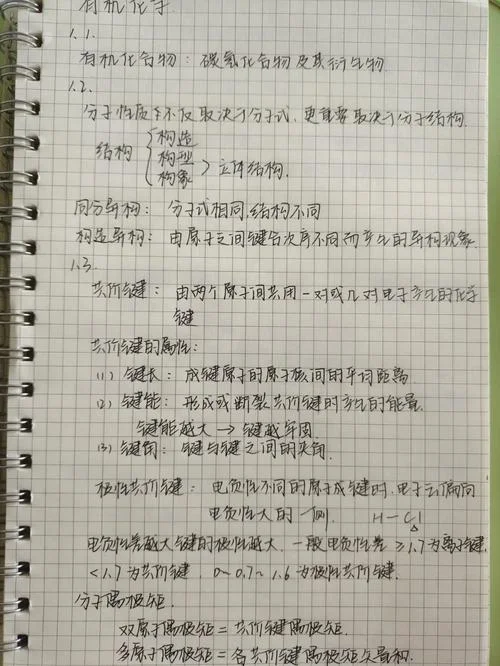 有机化学
1.1.
有机化合物：碳氢化合物及其衍生物
1.2.
分子性质不仅取决于分子式，更重要取决于分子结构.
结构 { 构造 构型 构象 } 立体结构.
同分异构：分子式相同，结构不同
构造异构：由原子之间键合次序不同而产生的异构现象
1.3.
共价键：由两个原子间共用一对或几对电子产生的化学
键
共价键的属性：
(1) 键长：成键原子的原子核间的平均距离
(2) 键能：形成或断裂共价键时产生的能量.
键能越大 → 键越牢固.
(3) 键角：键与键之间的夹角.
极性共价键：电负性不同的原子成键时，电子云偏向
电负性大的一侧. H—Cl
电负性差越大键的极性越大. 一般电负性差 ≥1.7为离子键.
<1.7为共价键，0~0.7~1.6为极性共价键.
分子偶极矩.
双原子偶极矩 = 共价键偶极矩.
多原子偶极矩 = 各共价键偶极矩矢量和